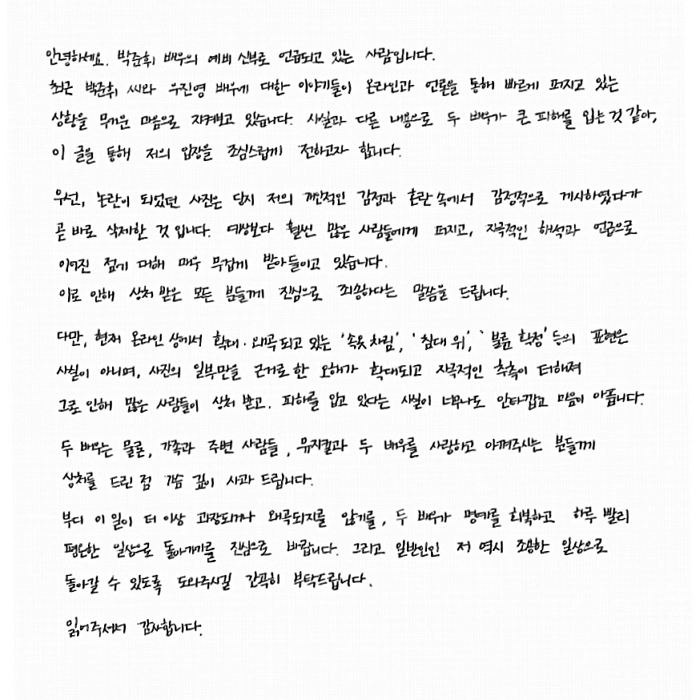 안녕하세요. 박준휘 배우의 예비 신부로 언급되고 있는 사람입니다.
최근 박준휘 씨와 우진영 배우에 대한 이야기들이 온라인과 언론을 통해 빠르게 퍼지고 있는
상황을 무거운 마음으로 지켜보고 있습니다. 사실과 다른 내용으로 두 배우가 큰 피해를 입는 것 같아,
이 글을 통해 저의 입장을 조심스럽게 전하고자 합니다.
우선, 논란이 되었던 사진은 당시 저의 개인적인 감정과 혼란 속에서 감정적으로 게시하였다가
곧바로 삭제한 것입니다. 예상보다 훨씬 많은 사람들에게 퍼지고, 자극적인 해석과 언급으로
이어진 점에 대해 매우 무겁게 받아들이고 있습니다.
이로 인해 상처 받은 모든 분들께 진심으로 죄송하다는 말씀을 드립니다.
다만, 현재 온라인 상에서 확대·왜곡되고 있는 '속옷 차림', '침대 위', '불륜 확정' 등의 표현은
사실이 아니며, 사진의 일부만을 근거로 한 오해가 확대되고 자극적인 추측이 더해져
그로 인해 많은 사람들이 상처 받고, 피해를 입고 있다는 사실이 너무나도 안타깝고 마음이 아픕니다.
두 배우는 물론, 가족과 주변 사람들, 뮤지컬과 두 배우를 사랑하고 아껴주시는 분들께
상처를 드린 점 가슴 깊이 사과 드립니다.
부디 이 일이 더 이상 과장되거나 왜곡되지를 않기를, 두 배우가 명예를 회복하고 하루 빨리
평온한 일상으로 돌아가기를 진심으로 바랍니다. 그리고 일반인인 저 역시 조용한 일상으로
돌아갈 수 있도록 도와주시길 간곡히 부탁드립니다.
읽어주셔서 감사합니다.